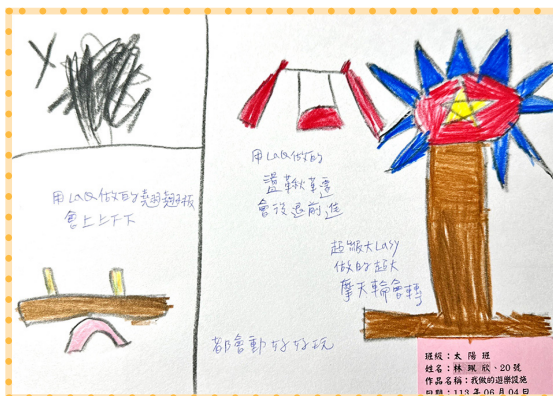 用LaQ做的翹翹板
會上上下下
用LaQ做的
盪鞦韆
會後退前進
超級大Lasy
做的超大
摩天輪會轉
都會動好好玩
班級：太陽班
姓名：林珮欣、20號
作品名稱：我做的遊樂設施
日期：113年06月04日